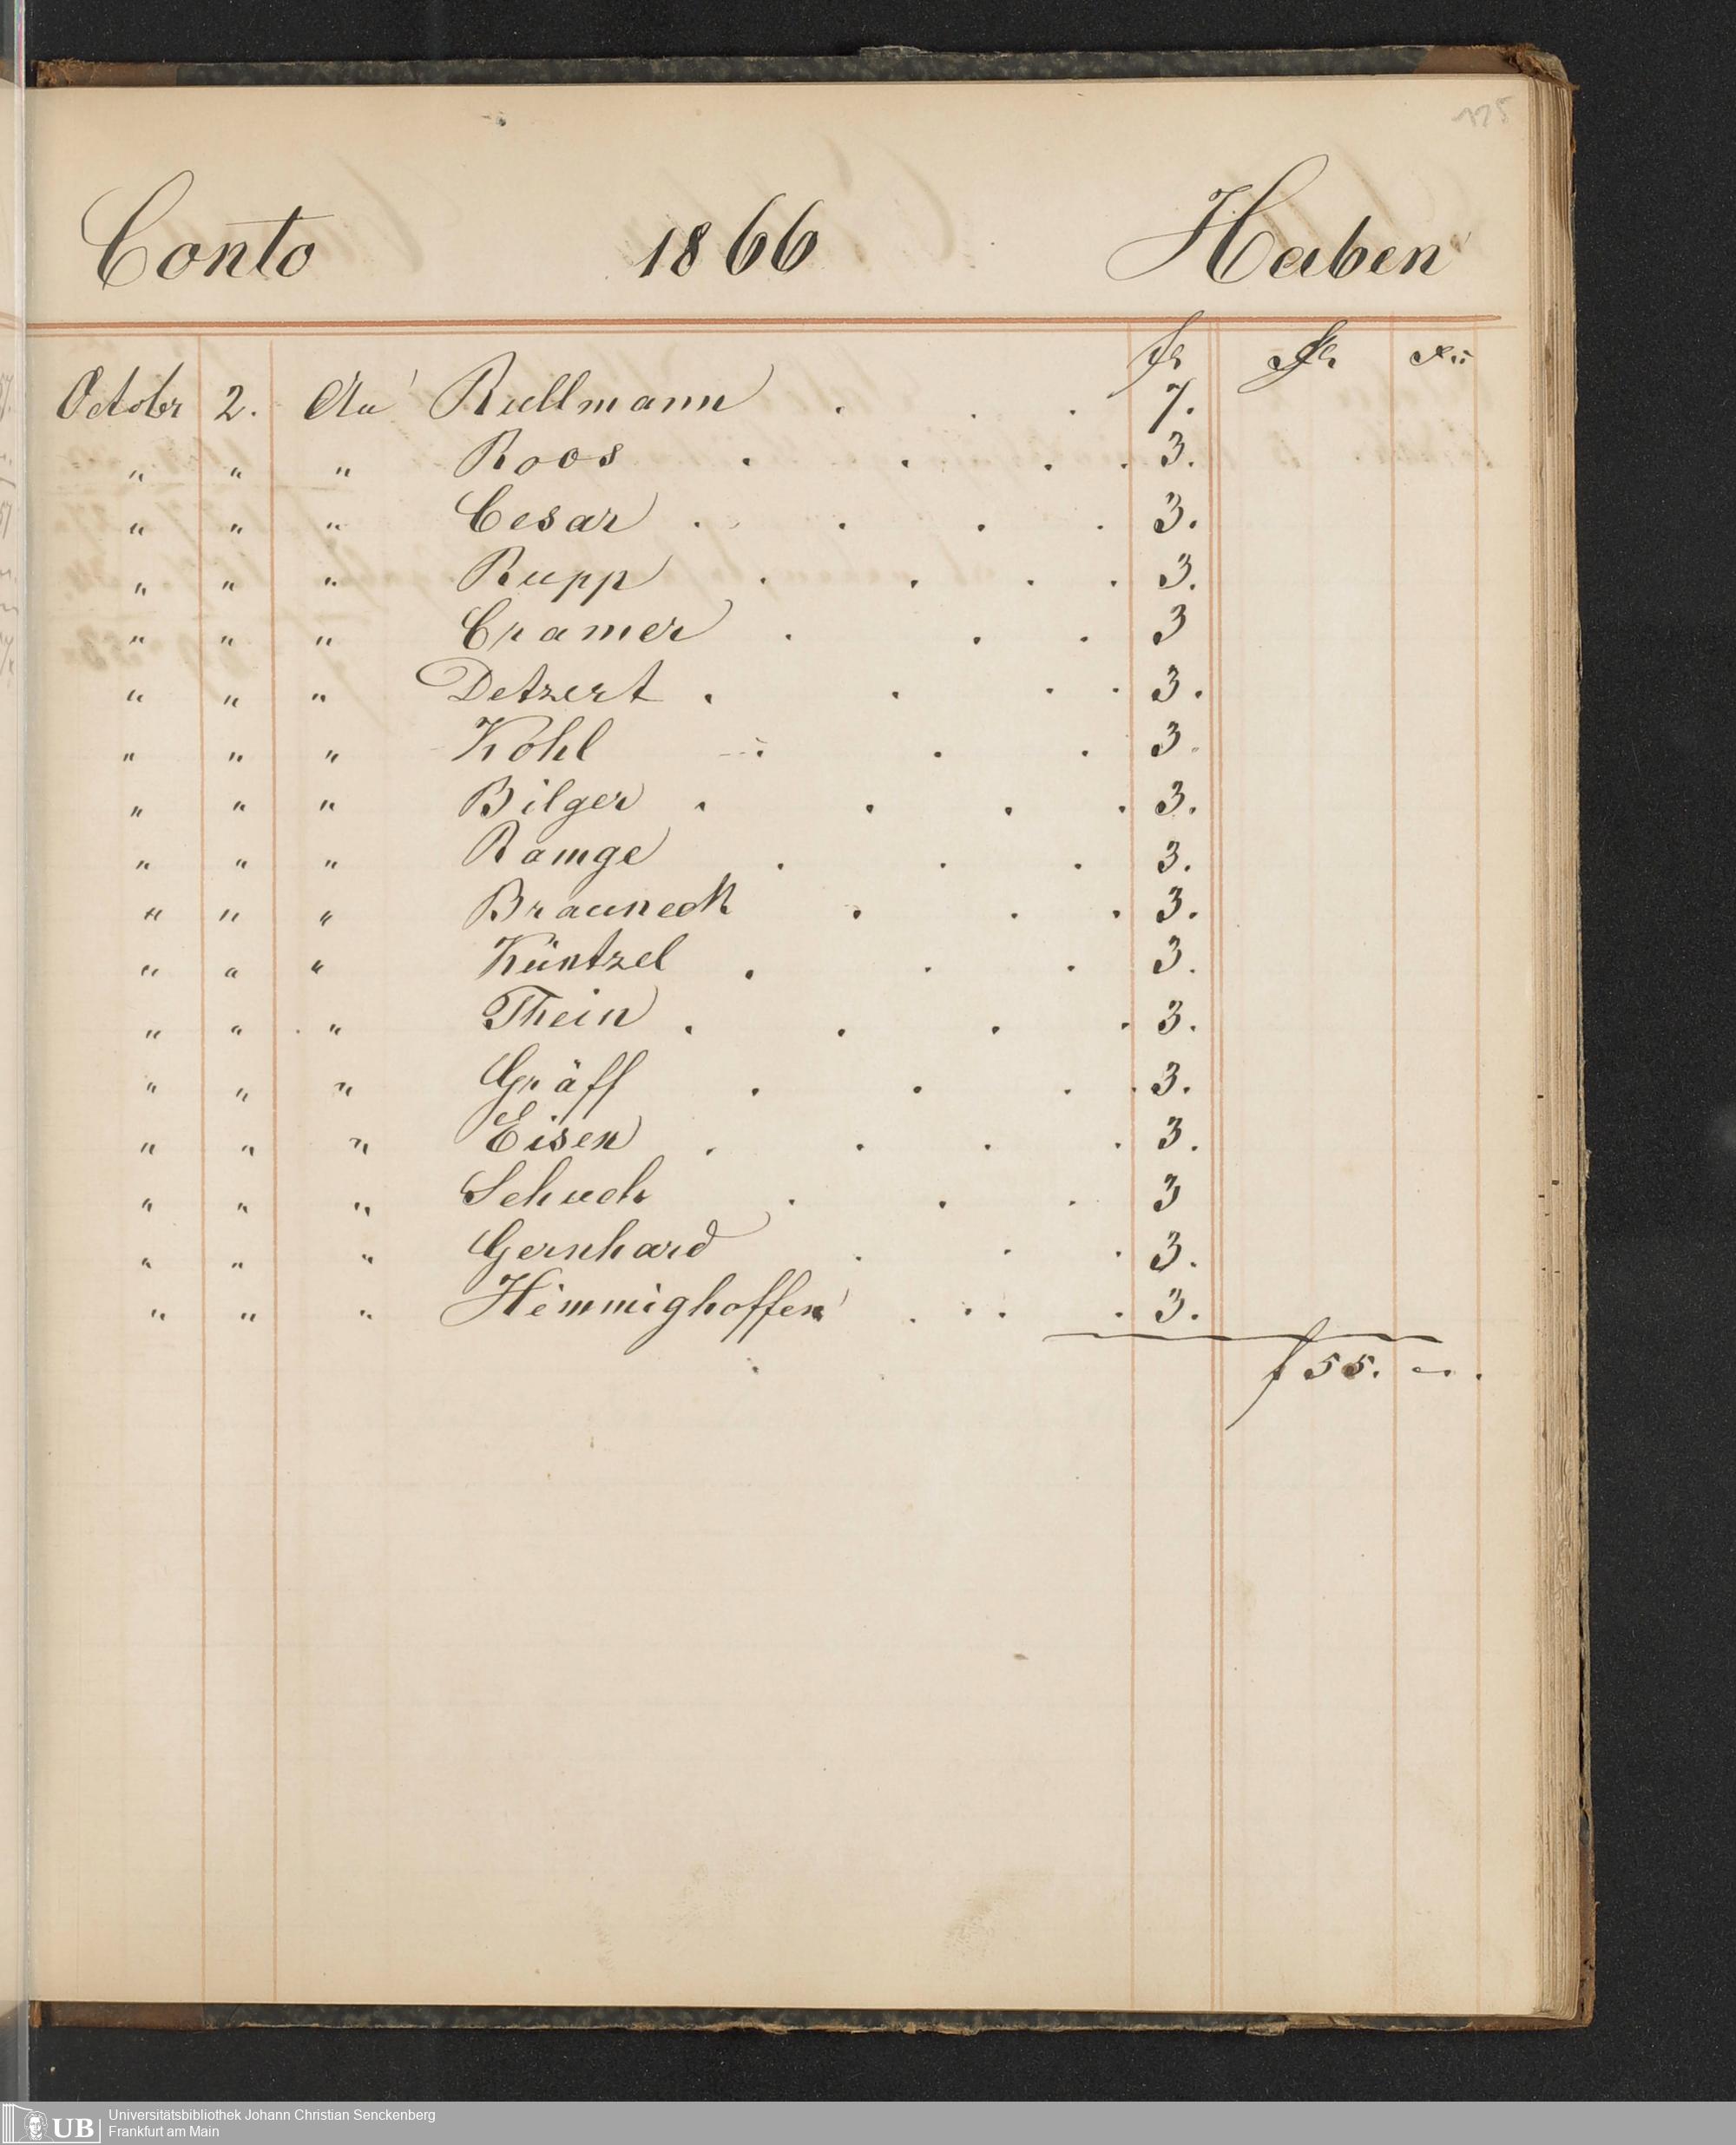 125
Conto 1866 Haben
fl fl Xr
Octobr 2. An Rullmann . . . 7.
" " " Roos . . . . 3.
" " " Cesar . . . . 3.
" " " Rupp . . . . 3.
" " " Cramer . . . 3
" " " Detzert . . . . 3.
" " " Kohl . . . 3.
" " " Bilger . . . . 3.
" " " Ramge . . . 3.
" " " Brauneck . . . 3.
" " " Küntzel . . . 3.
" " " Thein . . . . 3.
" " " Gräff . . . . 3.
" " " Eisen . . . . 3.
" " " Schuch . . . 3
" " " Gernhard . . . 3.
" " " Himmighoffen . . . . 3.
f 55. – .
UB Universitätsbibliothek Johann Christian Senckenberg
Frankfurt am Main